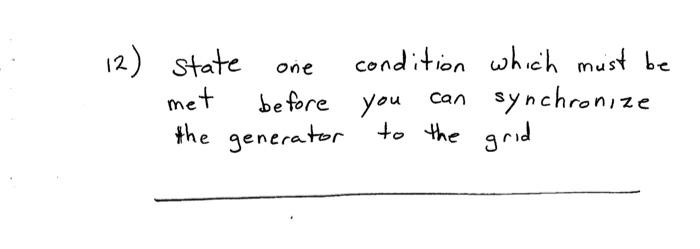 12) State one condition which must be
met before you can synchronize
the generator to the grid